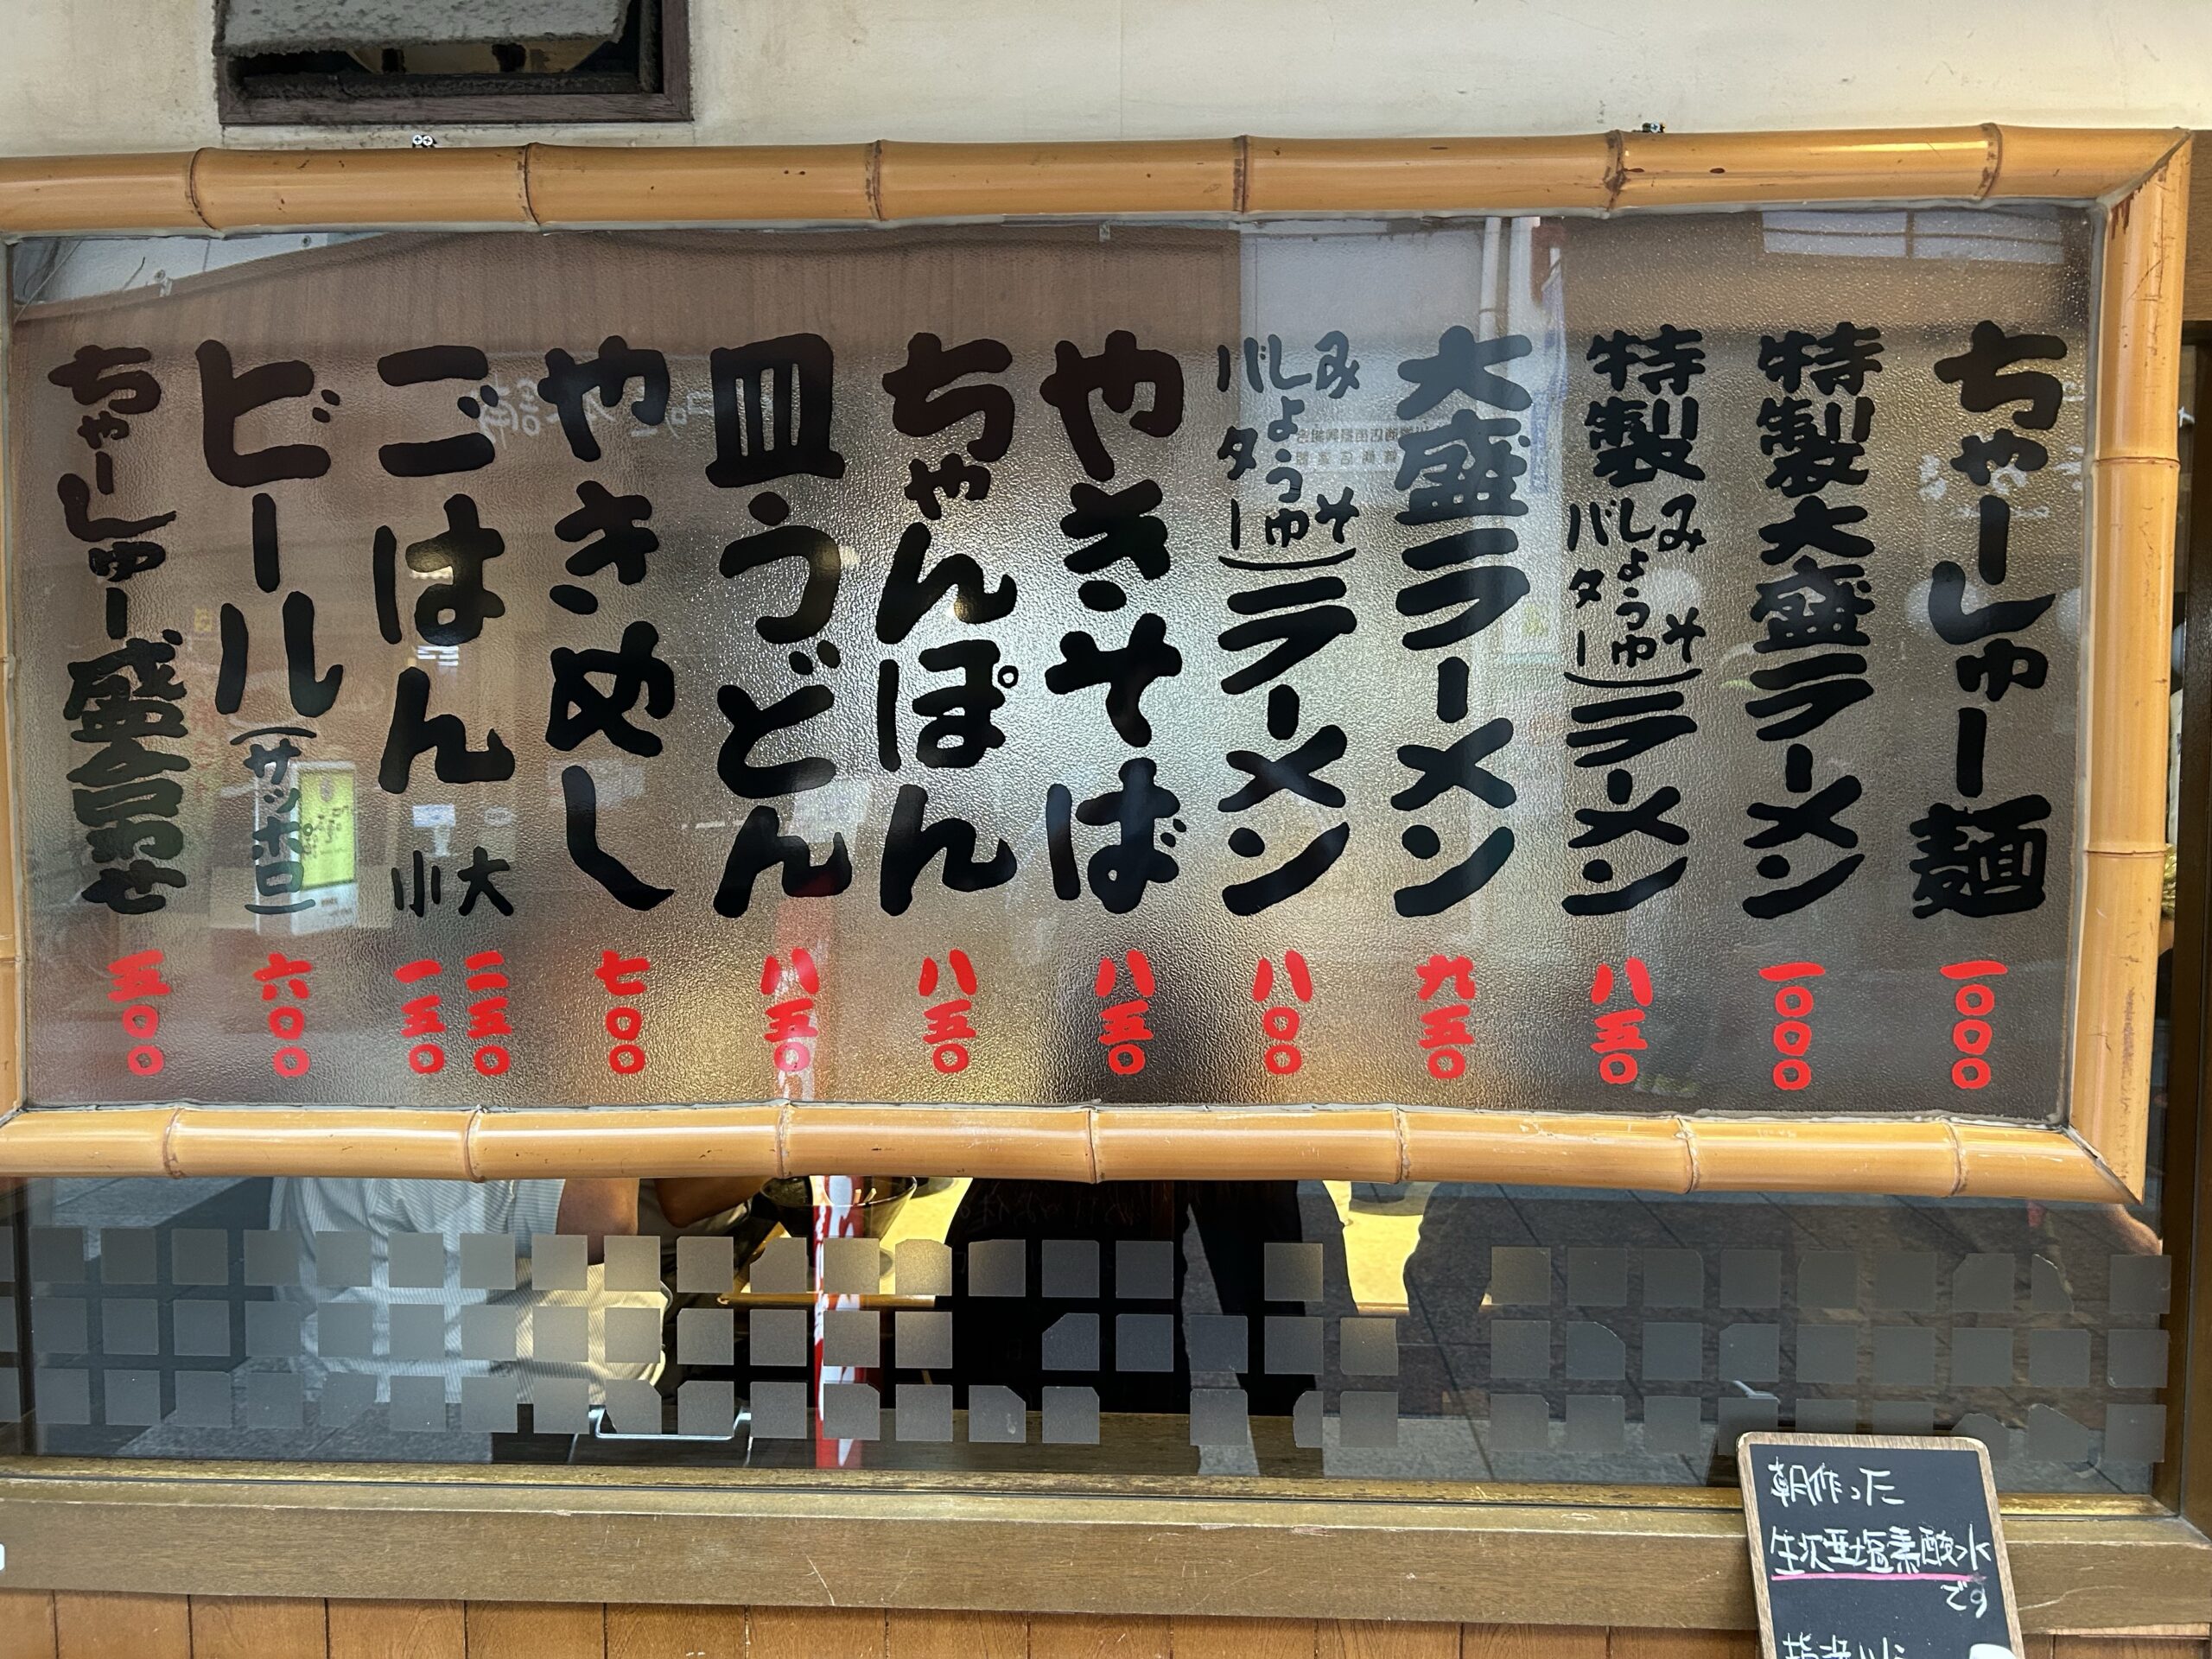 ちゃーしゅー麺 一〇〇〇
特製大盛ラーメン 一〇〇〇
特製(みそ しょうゆ バター)ラーメン 八五〇
大盛ラーメン 九五〇
(みそ しょうゆ バター)ラーメン 八〇〇
やきそば 八五〇
ちゃんぽん 八五〇
皿うどん 八五〇
やきめし 七〇〇
ごはん 大 二五〇
小 一五〇
ビール(サッポロ) 六〇〇
ちゃーしゅー盛合わせ 五〇〇
朝作った
生次亜塩素酸水
です